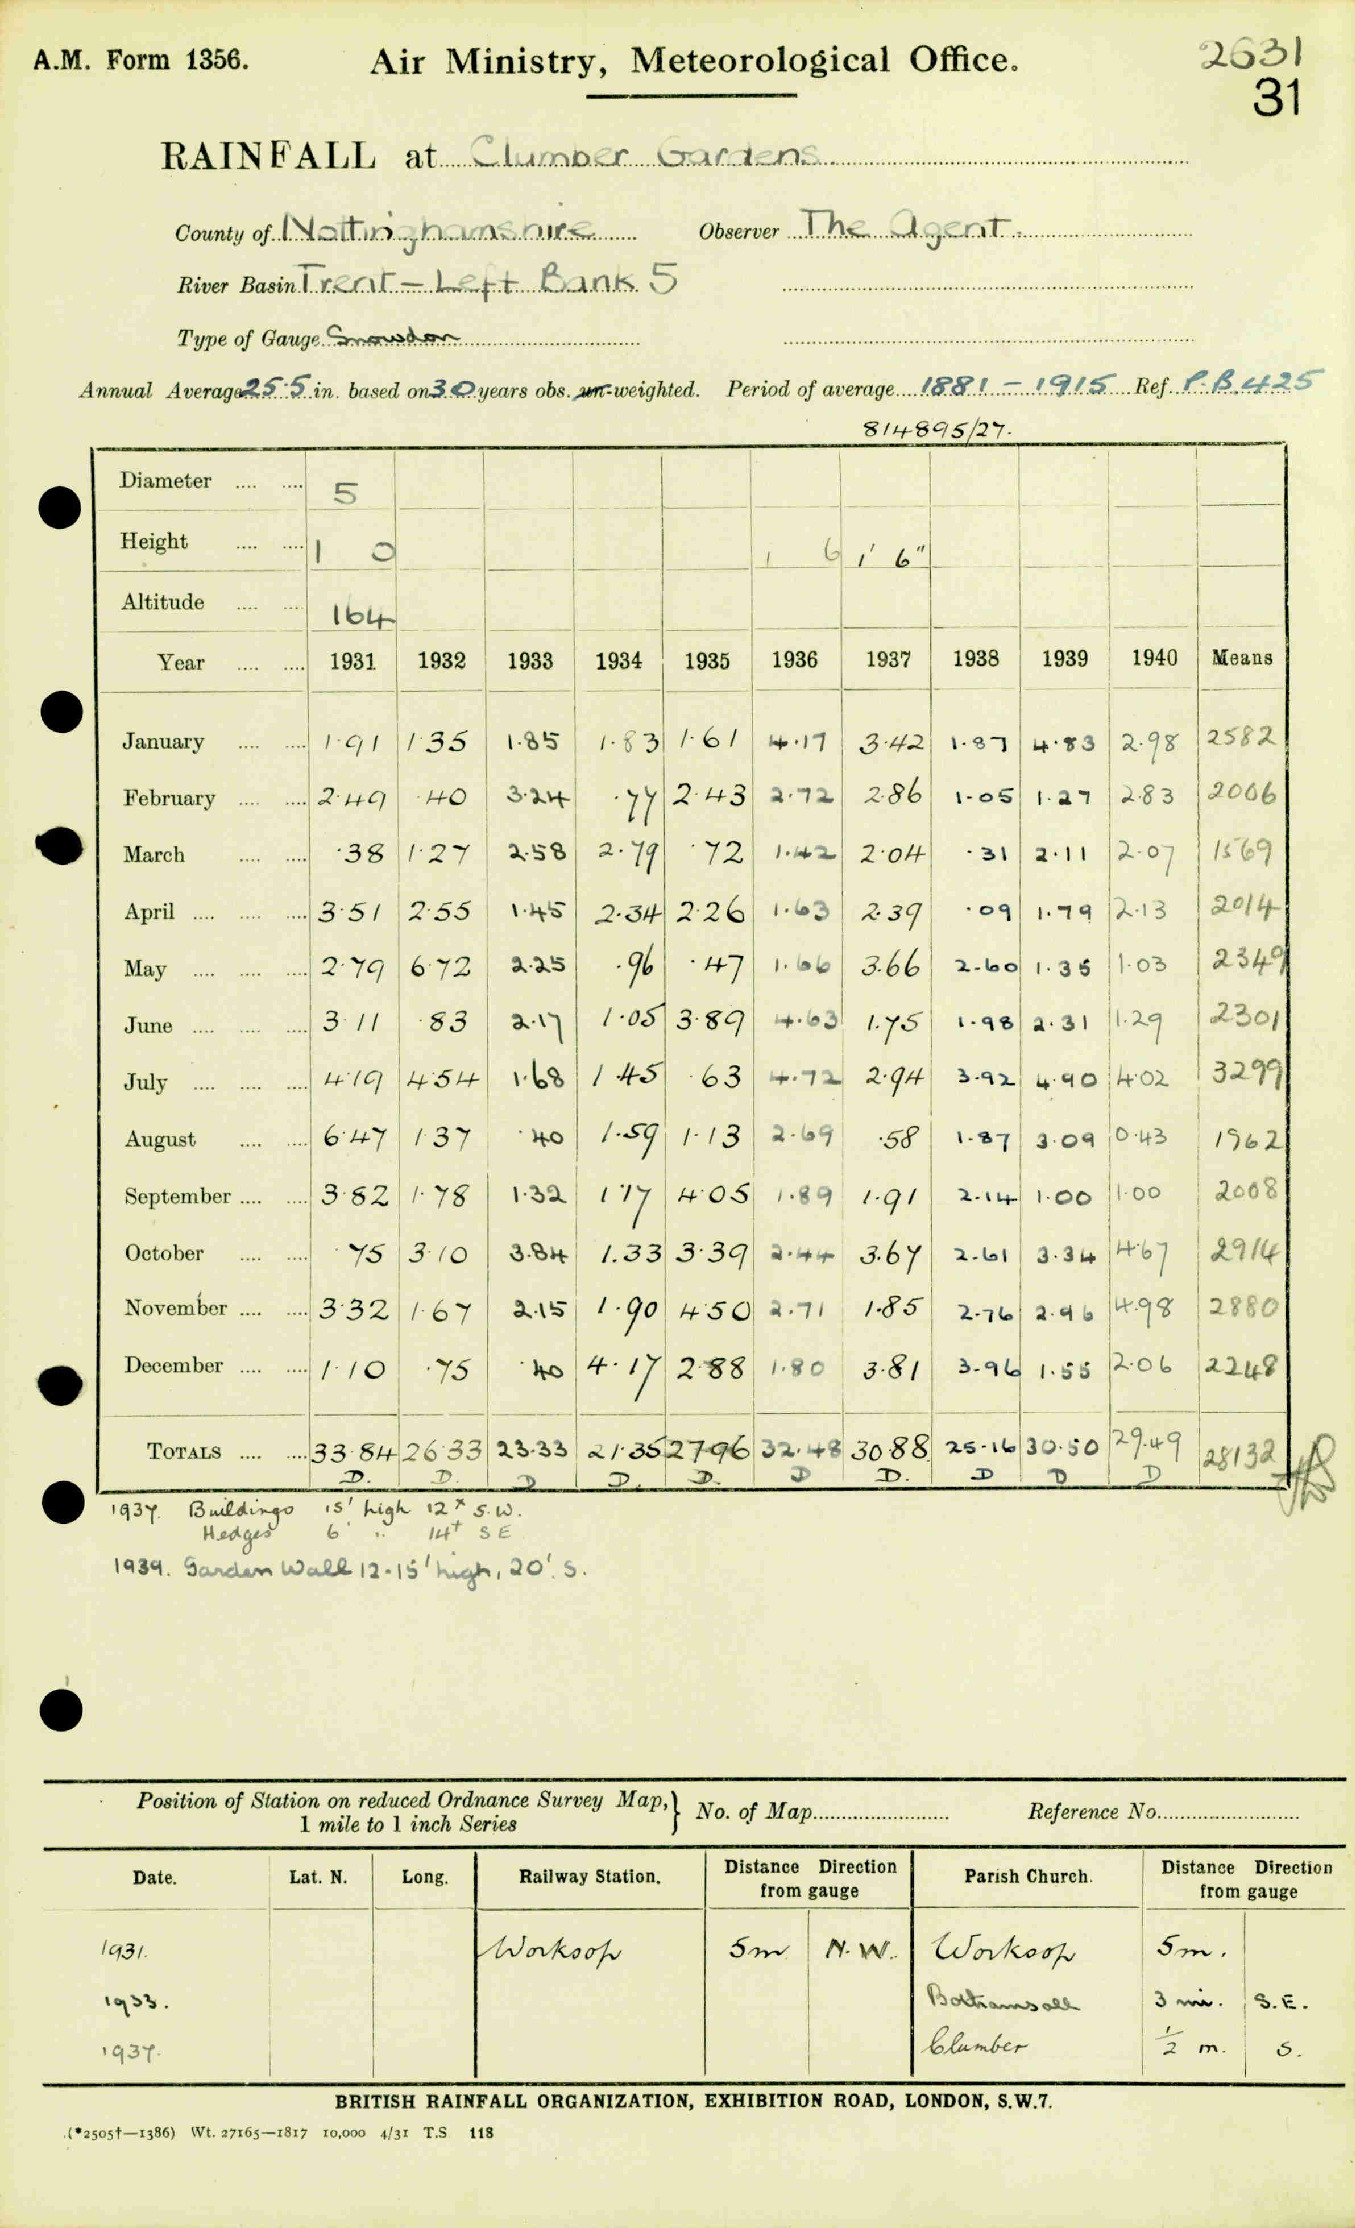 A.M. Form 1356. Air Ministry, Meteorological Office. 2631
31
RAINFALL at Clumber Gardens
County of Nottinghamshire Observer The Agent.
River Basin Trent – Left Bank 5
Type of Gauge Snowdon
Annual Average 25·5 in. based on 30 years obs. un-weighted. Period of average 1881 – 1915 Ref. P.B.425
814895/27.
Diameter 5
Height 1 0 1 6 1' 6"
Altitude 164
Year 1931 1932 1933 1934 1935 1936 1937 1938 1939 1940 Means
January 1·91 1·35 1·85 1·83 1·61 4·17 3·42 1·87 4·83 2·98 2582
February 2·49 ·40 3·24 ·77 2·43 2·72 2·86 1·05 1·27 2·83 2006
March ·38 1·27 2·58 2·79 ·72 1·42 2·04 ·31 2·11 2·07 1569
April 3·51 2·55 1·45 2·34 2·26 1·63 2·39 ·09 1·79 2·13 2014
May 2·79 6·72 2·25 ·96 ·47 1·66 3·66 2·60 1·35 1·03 2349
June 3·11 ·83 2·17 1·05 3·89 4·63 1·75 1·98 2·31 1·29 2301
July 4·19 4·54 1·68 1·45 ·63 4·72 2·94 3·92 4·90 4·02 3299
August 6·47 1·37 ·40 1·59 1·13 2·69 ·58 1·87 3·09 0·43 1962
September 3·82 1·78 1·32 1·17 4·05 1·89 1·91 2·14 1·00 1·00 2008
October ·75 3·10 3·84 1·33 3·39 2·44 3·67 2·61 3·34 4·67 2914
November 3·32 1·67 2·15 1·90 4·50 2·71 1·85 2·76 2·96 4·98 2880
December 1·10 ·75 ·40 4·17 2·88 1·80 3·81 3·96 1·55 2·06 2248
TOTALS 33·84 26·33 23·33 21·35 27·96 32·48 30·88 25·16 30·50 29·49 28132
D. D. D D. D. D D. D D D
1937. Buildings 15' high 12ˣ S.W.
Hedges 6' " 14⁺ S E
1939. Garden Wall 12-15' high, 20'. S.
Position of Station on reduced Ordnance Survey Map, } No. of Map Reference No.
1 mile to 1 inch Series
Date. Lat. N. Long. Railway Station. Distance Direction from gauge Parish Church. Distance Direction from gauge
1931. Worksop 5m N.W. Worksop 5m.
1933. Bothamsall 3 mi. S.E.
1937. Clumber ½ m. S.
BRITISH RAINFALL ORGANIZATION, EXHIBITION ROAD, LONDON, S.W.7.
(*2505†—1386) Wt. 27165—1817 10,000 4/31 T.S 118